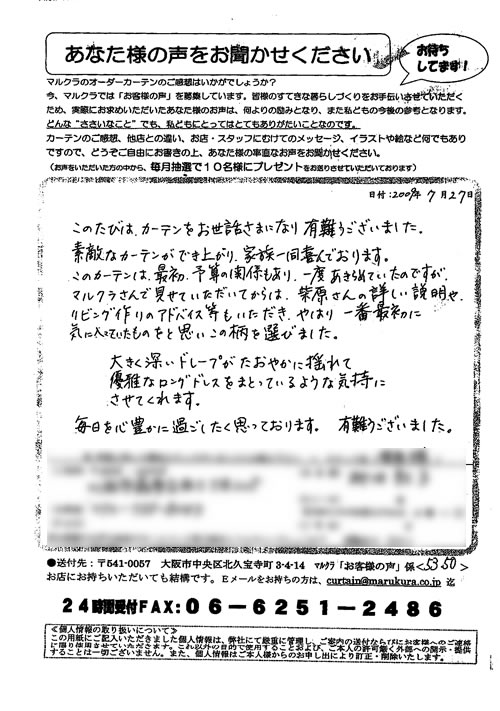 あなた様の声をお聞かせください
お待ち
してます!
マルクラのオーダーカーテンのご感想はいかがでしょうか?
今、マルクラでは「お客様の声」を募集しています。皆様のすてきな暮らしづくりをお手伝いさせていただく
ため、実際にお求めいただいたあなた様のお声は、何よりの励みとなり、また私どもの今後の参考となります。
どんな“ささいなこと”でも、私どもにとってはとてもありがたいことなのです。
カーテンのご感想、他店との違い、お店・スタッフにむけてのメッセージ、イラストや絵など何でもあり
ですので、どうぞご自由にお書きの上、あなた様の率直なお声をお聞かせください。
(お声をいただいた方の中から、毎月抽選で10名様にプレゼントをお送りさせていただいております)
日付:2009年 7月27日
このたびは、カーテンをお世話さまになり 有難うございました。
素敵なカーテンができ上がり、家族一同喜んでおります。
このカーテンは、最初、予算の関係もあり、一度あきらめていたのですが、
マルクラさんで見せていただいてからは、柴原さんの詳しい説明や、
リビング作りのアドバイス等もいただき、やはり 一番最初に
気に入っていたものをと思いこの柄を選びました。
大きく深いドレープがたおやかに揺れて
優雅なロングドレスをまとっているような気持に
させてくれます。
毎日を心豊かに過ごしたく思っております。 有難うございました。
●送付先:〒541-0057 大阪市中央区北久宝寺町3-4-14 マルクラ「お客様の声」係<5350>
お店にお持ちいただいても結構です。Eメールをお持ちの方は、curtain@marukura.co.jp 迄
24時間受付FAX:06-6251-2486
≪個人情報の取り扱いについて≫
この用紙にご記入いただきました個人情報は、弊社にて厳重に管理し、ご案内の送付ならびにお客様へのご連絡
に限り使用させていただきます。これ以外の目的で使用することおよび、ご本人の許可無く外部への開示・提供
することは一切ございません。また、個人情報はご本人様からのお申し出により訂正・削除いたします。